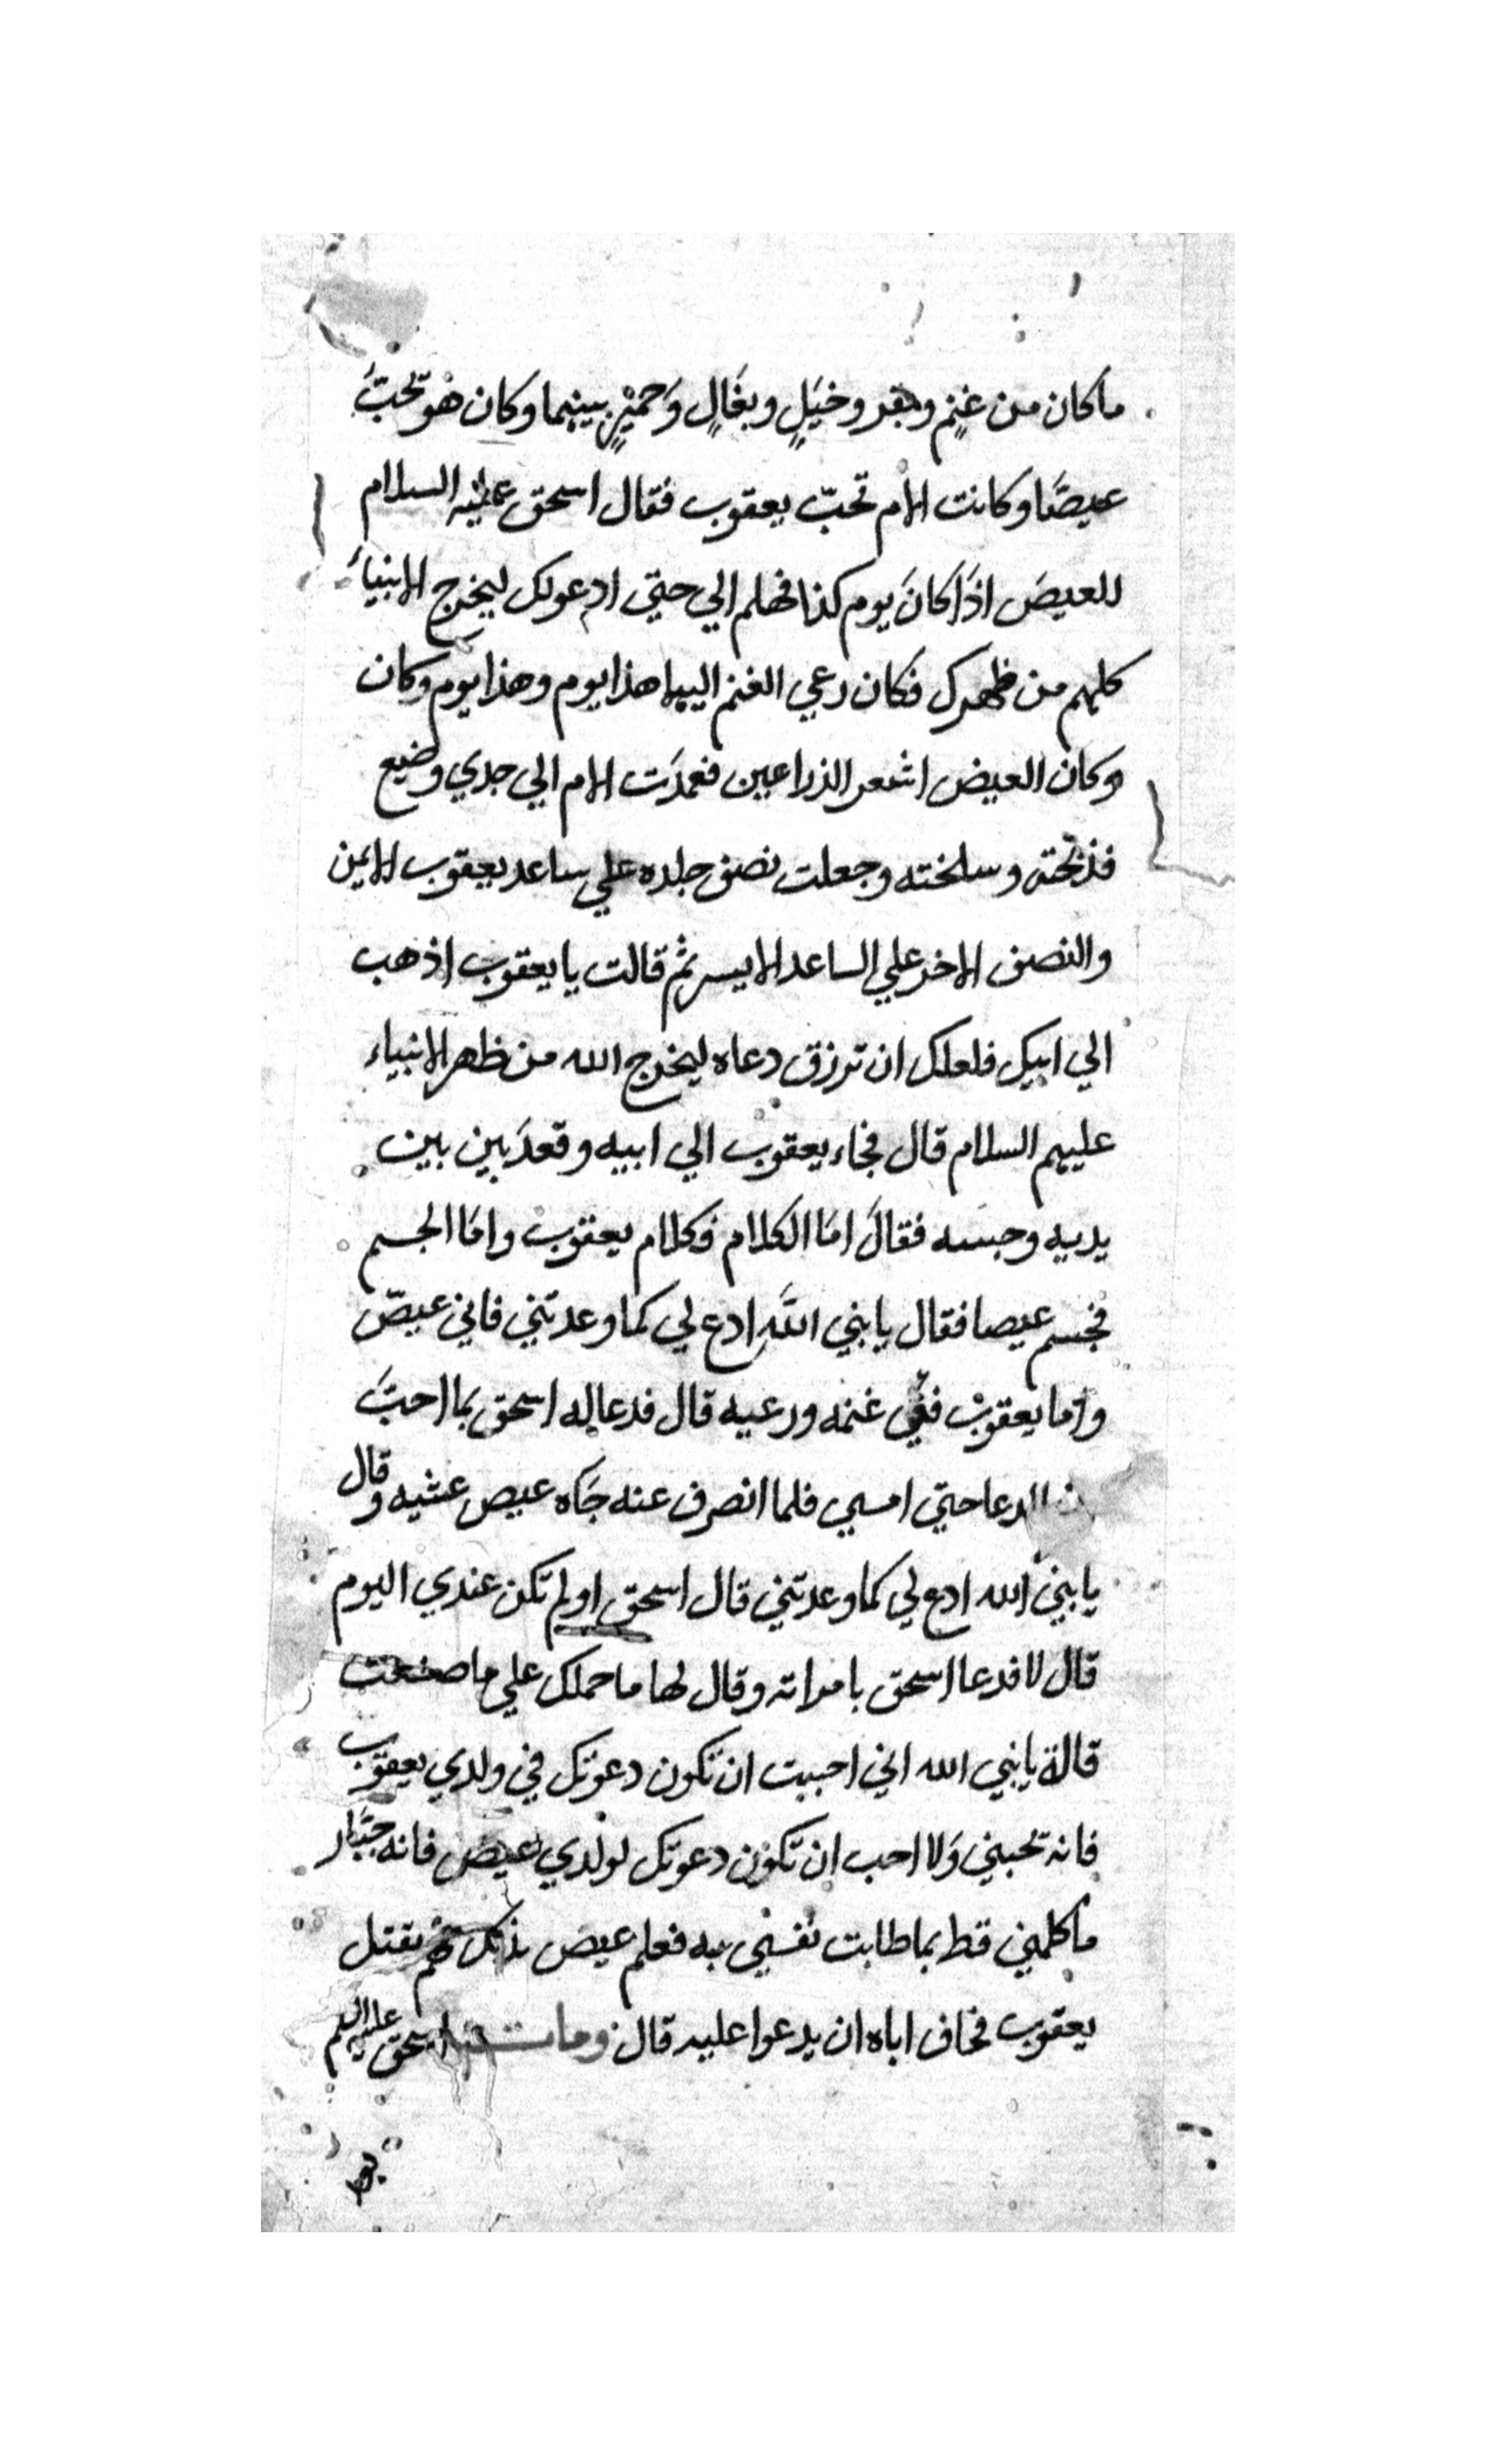 ما كان من غنمٍ وبقر وخيلٍ وبغالٍ وَحميرٍ بينهما وكان هو تحبَّ
عيصًا وكانت الام تحبّ يعقوب فقال اسحق عليه السلام
للعيصَ اذَا كانَ يوم كذا فهلم الي حتي ادعولك ليخرج الانبياءَ
كلهم من ظهرك فكان رعي الغنم اليها هذا يوم وهذا يوم وكان
وكان العيض اشعر الذراعين فعمدَت الام الي جدي وضيع
فذبحته وسلخته وجعلت نصف جلده علي ساعد يعقوب الايمن
والنصف الاخر علي الساعد الايسر ثم قالت يا يعقوب اذهب
الي ابيك فلعلك ان ترزق دعاه ليخرج الله من ظهر الانبياء
عليهم السلام قال فجاء يعقوب الي ابيه وقعدَ بين بين
يديه وجسه فقالَ امَا الكلام فكلام يعقوب وامَا الجسم
فجسم عيصا فقال يا بني اللَّه ادع لي كما وعدتني فاني عيصّ
واما يعقوبْ ففي غنمه ورعيه قال فدعا له اسحق بما احبَّ
الدعا حتي امسي فلما انصرف عنه جَاه عيص عشيه وقال
يا بنيَ الله ادع لي كما وعدتني قال اسحق اولم تكن عندي اليوم
قال لا فدعا اسحق بامراته وقال لها ما حملك علي ما صنعت
قالة يا نبي الله اني احببت ان تكون دعوتك في ولدي يعقوب
فانه تحبني وَلا احب ان تكون دعوتك لولدي عيض فانه جبَّار
ما كلمني قط بما طابت نفسي به فعلم عيص بذلك فهم بقتل
يعقوب فخاف اباه ان يدعوا عليه قال ومات اسحق عليه السلم